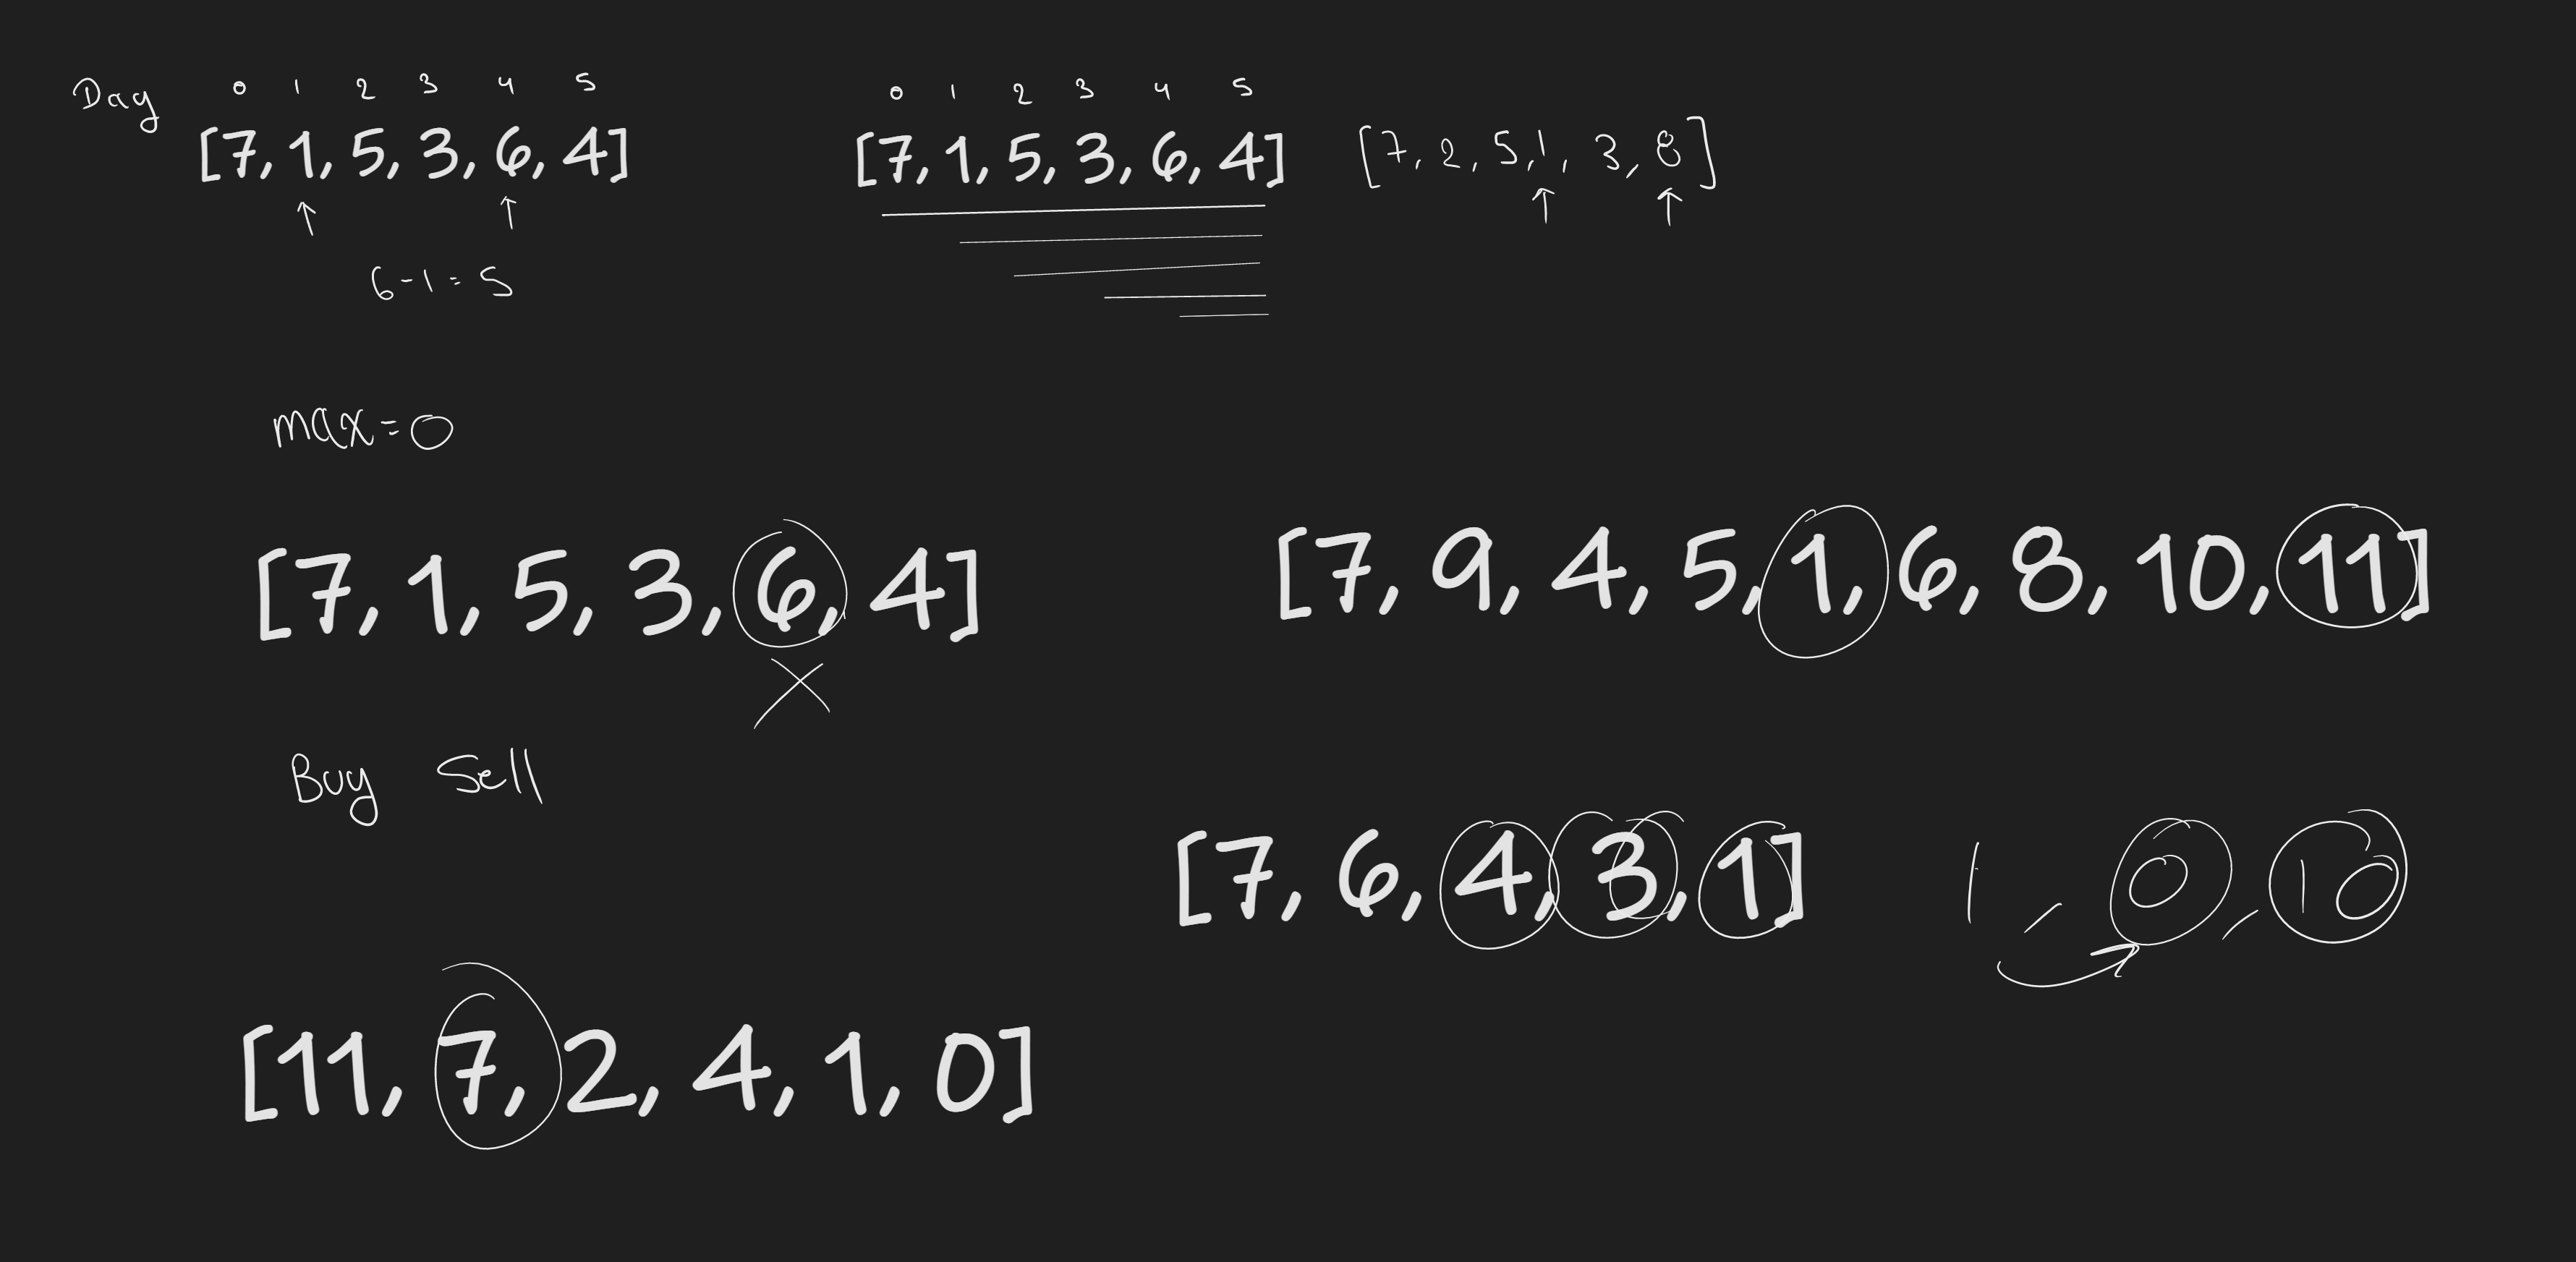 Day 0 1 2 3 4 5
[7, 1, 5, 3, 6, 4]
6-1=5
0 1 2 3 4 5
[7, 1, 5, 3, 6, 4]
[7, 2, 5, 1, 3, 8]
max=0
[7, 1, 5, 3, 6, 4]
[7, 9, 4, 5, 1, 6, 8, 10, 11]
Buy Sell
[7, 6, 4, 3, 1]
1, 0, 10
[11, 7, 2, 4, 1, 0]